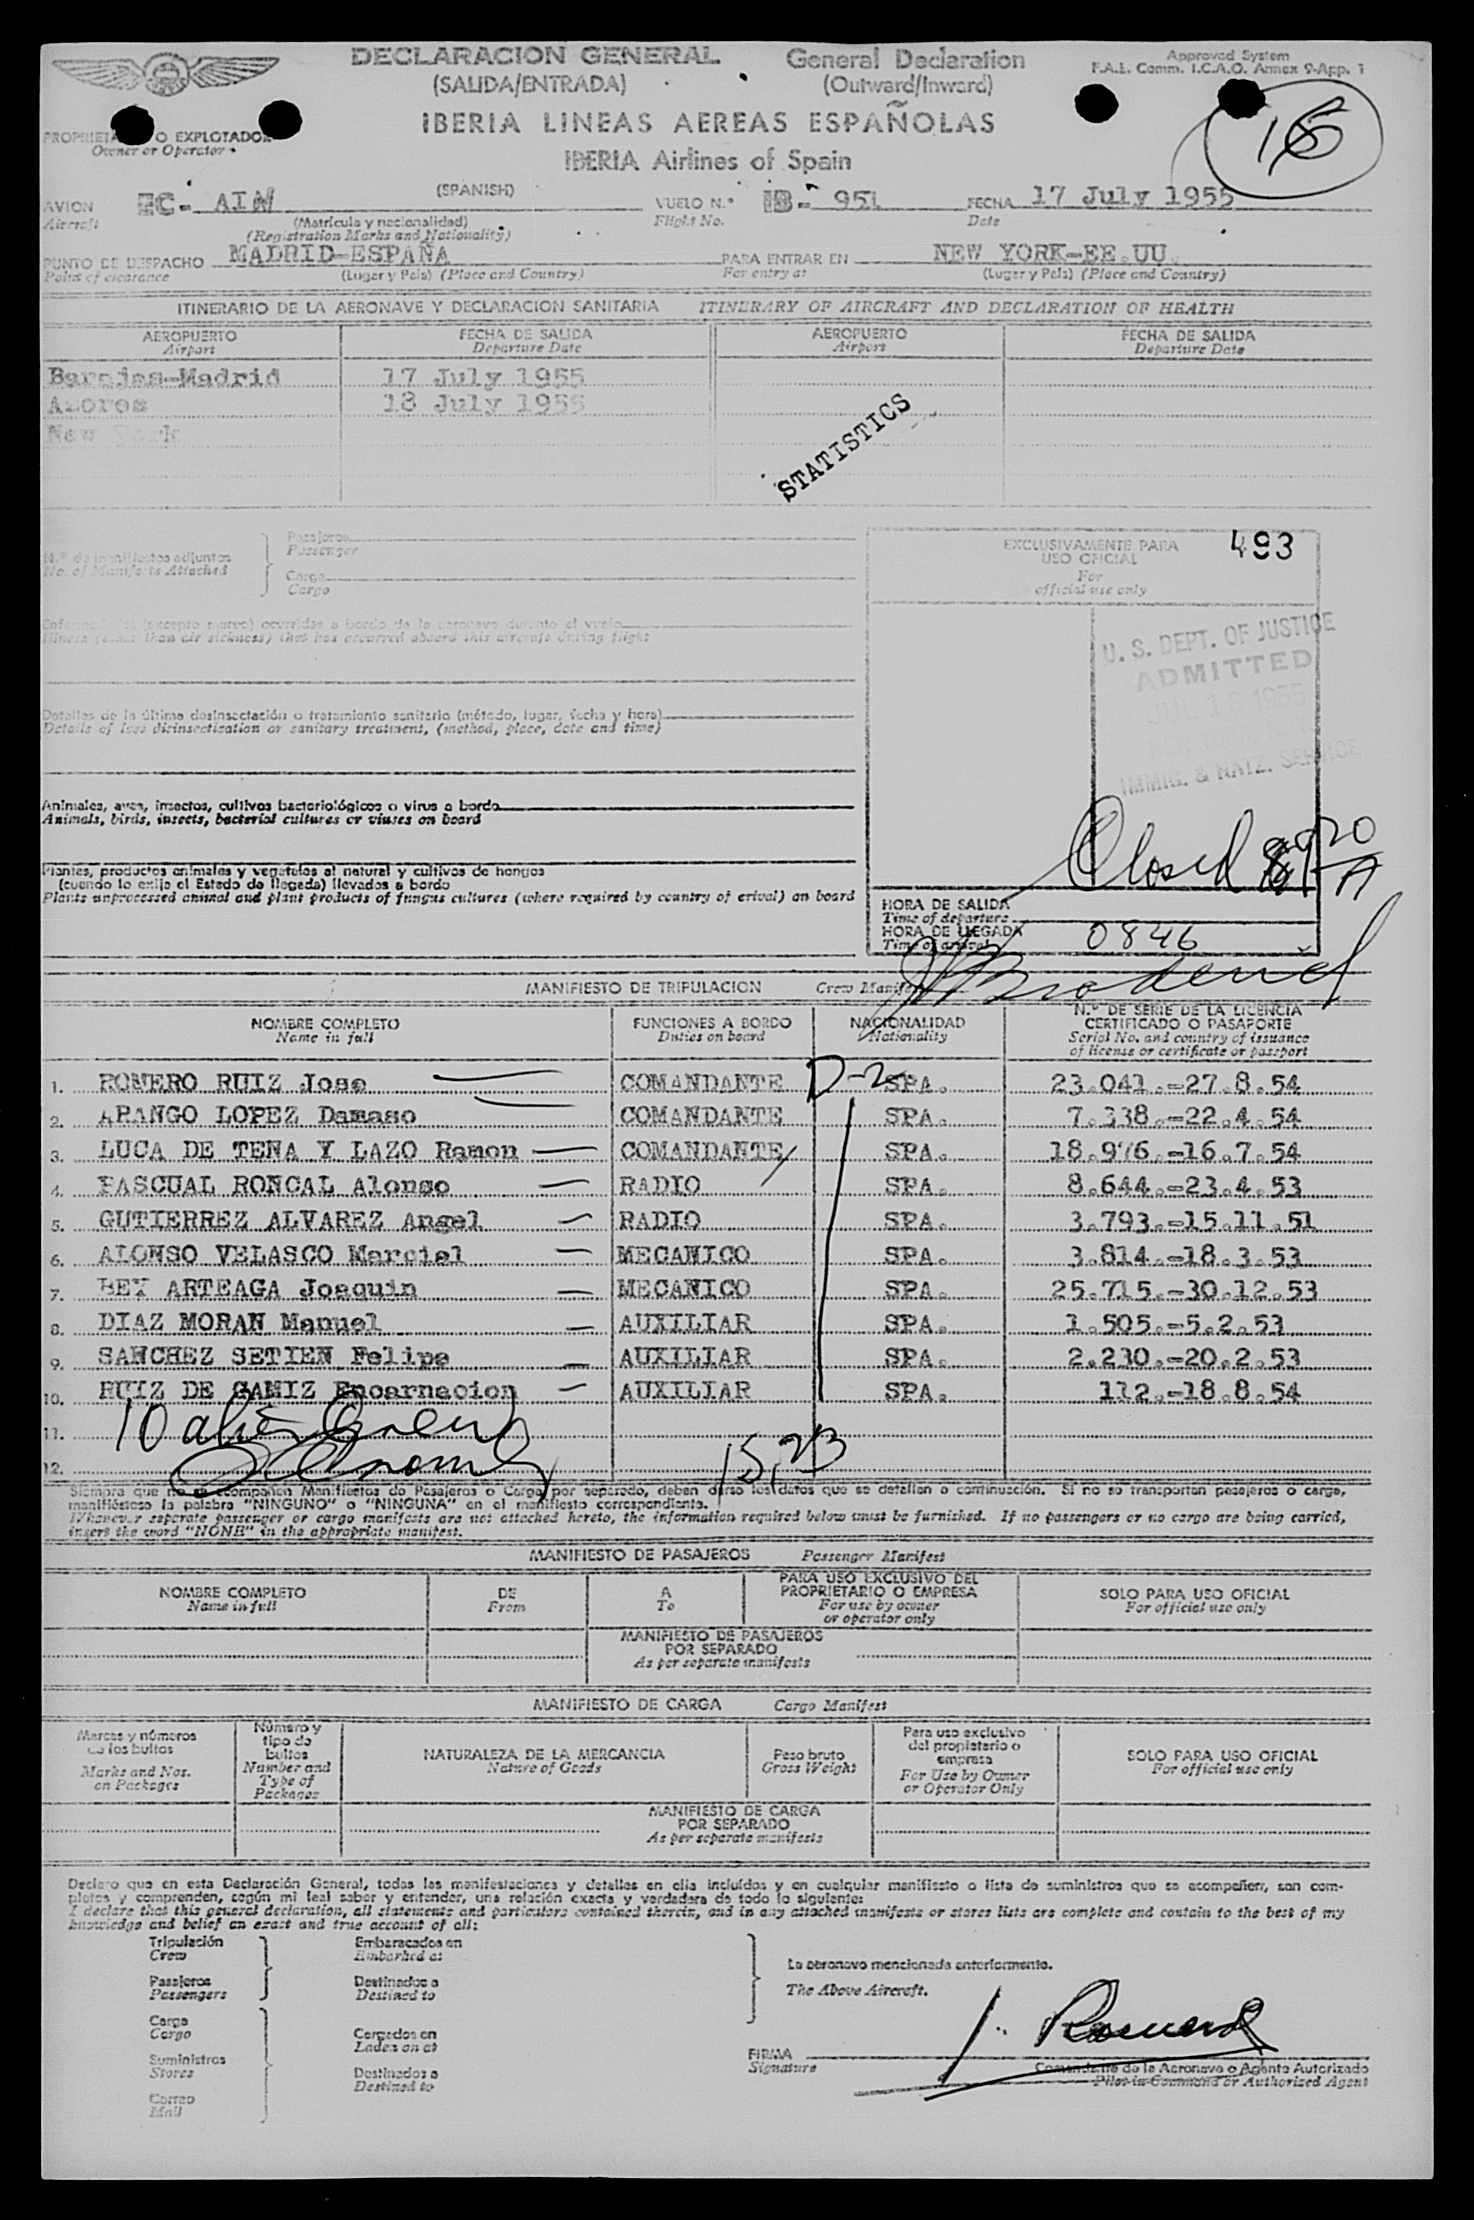 DECLARACION GENERAL General Declaration
(SALIDA/ENTRADA) (Outward/Inward)
Approved System
F.A.L. Comm. I.C.A.O. Annex 9-App. 1
IBERIA LINEAS AEREAS ESPAÑOLAS
PROPIETA O EXPLOTADOR
Owner or Operator
IBERIA Airlines of Spain
(SPANISH)
AVION EC- AIN VUELO N.º IB- 951 FECHA 17 July 1955
Aircraft (Matrícula y nacionalidad) Flight No. Date
(Registration Marks and Nationality)
PUNTO DE DESPACHO MADRID-ESPAÑA PARA ENTRAR EN NEW YORK-EE.UU.
Point of clearance (Lugar y País) (Place and Country) For entry at (Lugar y País) (Place and Country)
ITINERARIO DE LA AERONAVE Y DECLARACION SANITARIA ITINERARY OF AIRCRAFT AND DECLARATION OF HEALTH
AEROPUERTO FECHA DE SALIDA AEROPUERTO FECHA DE SALIDA
Airport Departure Date Airport Departure Date
Barajas-Madrid 17 July 1955
Azores 18 July 1955
New York
STATISTICS
N.º de manifiestos adjuntos
No. of Manifests Attached
Pasajeros
Passenger
Carga
Cargo
EXCLUSIVAMENTE PARA 493
USO OFICIAL
For
official use only
(excepto mareo) ocurridas a bordo de la aeronave durante el vuelo
Illness (other than air sickness) that has occurred aboard this aircraft during flight
U. S. DEPT. OF JUSTICE
ADMITTED
1955
IMMIG. & NATZ. SERVICE
Detalles de la última desinsectación o tratamiento sanitario (método, lugar, fecha y hora)
Details of last disinsectization or sanitary treatment, (method, place, date and time)
Animales, aves, insectos, cultivos bacteriológicos o virus a bordo
Animals, birds, insects, bacterial cultures or viuses on board
Closed
Plantas, productos animales y vegetales al natural y cultivos de hongos
(cuando lo exija el Estado de llegada) llevados a bordo
Plants unprocessed animal and plant products of fungus cultures (where required by country of erival) on board
HORA DE SALIDA
Time of departure
HORA DE LLEGADA 0846
Time of arrival
MANIFIESTO DE TRIPULACION Crew Manifest
NOMBRE COMPLETO FUNCIONES A BORDO NACIONALIDAD N.º DE SERIE DE LA LICENCIA
Name in full Duties on board Nationality CERTIFICADO O PASAPORTE
Serial No. and country of issuance
of license or certificate or passport
1. ROMERO RUIZ Jose COMANDANTE D-2 SPA. 23.041.-27.8.54
2. ARANGO LOPEZ Damaso COMANDANTE SPA. 7.338.-22.4.54
3. LUCA DE TENA Y LAZO Ramon COMANDANTE SPA. 18.976.-16.7.54
4. PASCUAL RONCAL Alonso RADIO SPA. 8.644.-23.4.53
5. GUTIERREZ ALVAREZ Angel RADIO SPA. 3.793.-15.11.51
6. ALONSO VELASCO Marcial MECANICO SPA. 3.814.-18.3.53
7. BEY ARTEAGA Joaquin MECANICO SPA. 25.715.-30.12.53
8. DIAZ MORAN Manuel AUXILIAR SPA. 1.505.-5.2.53
9. SANCHEZ SETIEN Felipe AUXILIAR SPA. 2.230.-20.2.53
10. RUIZ DE GAMIZ Encarnacion AUXILIAR SPA. 112.-18.8.54
11. 10 alien
12.
Siempre que no se acompañen Manifiestos de Pasajeros o Carga, por separado, deben darse los datos que se detallan a continuación. Si no se transportan pasajeros o carga,
manifiéstese la palabra "NINGUNO" o "NINGUNA" en el manifiesto correspondiente.
Whenever separate passenger or cargo manifests are not attached hereto, the information required below must be furnished. If no passengers or no cargo are being carried,
insert the word "NONE" in the appropriate manifest.
MANIFIESTO DE PASAJEROS Passenger Manifest
NOMBRE COMPLETO DE A PARA USO EXCLUSIVO DEL PROPIETARIO O EMPRESA SOLO PARA USO OFICIAL
Name in full From To For use by owner or operator only For official use only
MANIFIESTO DE PASAJEROS
POR SEPARADO
As per separate manifests
MANIFIESTO DE CARGA Cargo Manifest
Marcas y números de los bultos Número y tipo de bultos NATURALEZA DE LA MERCANCIA Peso bruto Para uso exclusivo del propietario o empresa SOLO PARA USO OFICIAL
Marks and Nos. on Packages Number and Type of Packages Nature of Goods Gross Weight For Use by Owner or Operator Only For official use only
MANIFIESTO DE CARGA
POR SEPARADO
As per separate manifests
Declaro que en esta Declaración General, todas las manifestaciones y detalles en ella incluídos y en cualquier manifiesto o lista de suministros que se acompañen, son com-
pletos y comprenden, según mi leal saber y entender, una relación exacta y verdadera de todo lo siguiente:
I declare that this general declaration, all statements and particulars contained therein, and in any attached manifests or stores lists are complete and contain to the best of my
knowledge and belief an exact and true account of all:
Tripulación Embaracados en
Crew Embarked at
La aeronave mencionada anteriormente.
Pasajeros Destinados a
Passengers Destined to
The Above Aircraft.
Carga Cargados en
Cargo Laden on at
Suministros Destinados a
Stores Destined to
Correo
Mail
FIRMA J. Romero
Signature Comandante de la Aeronave o Agente Autorizado
Pilot in Command or Authorized Agent